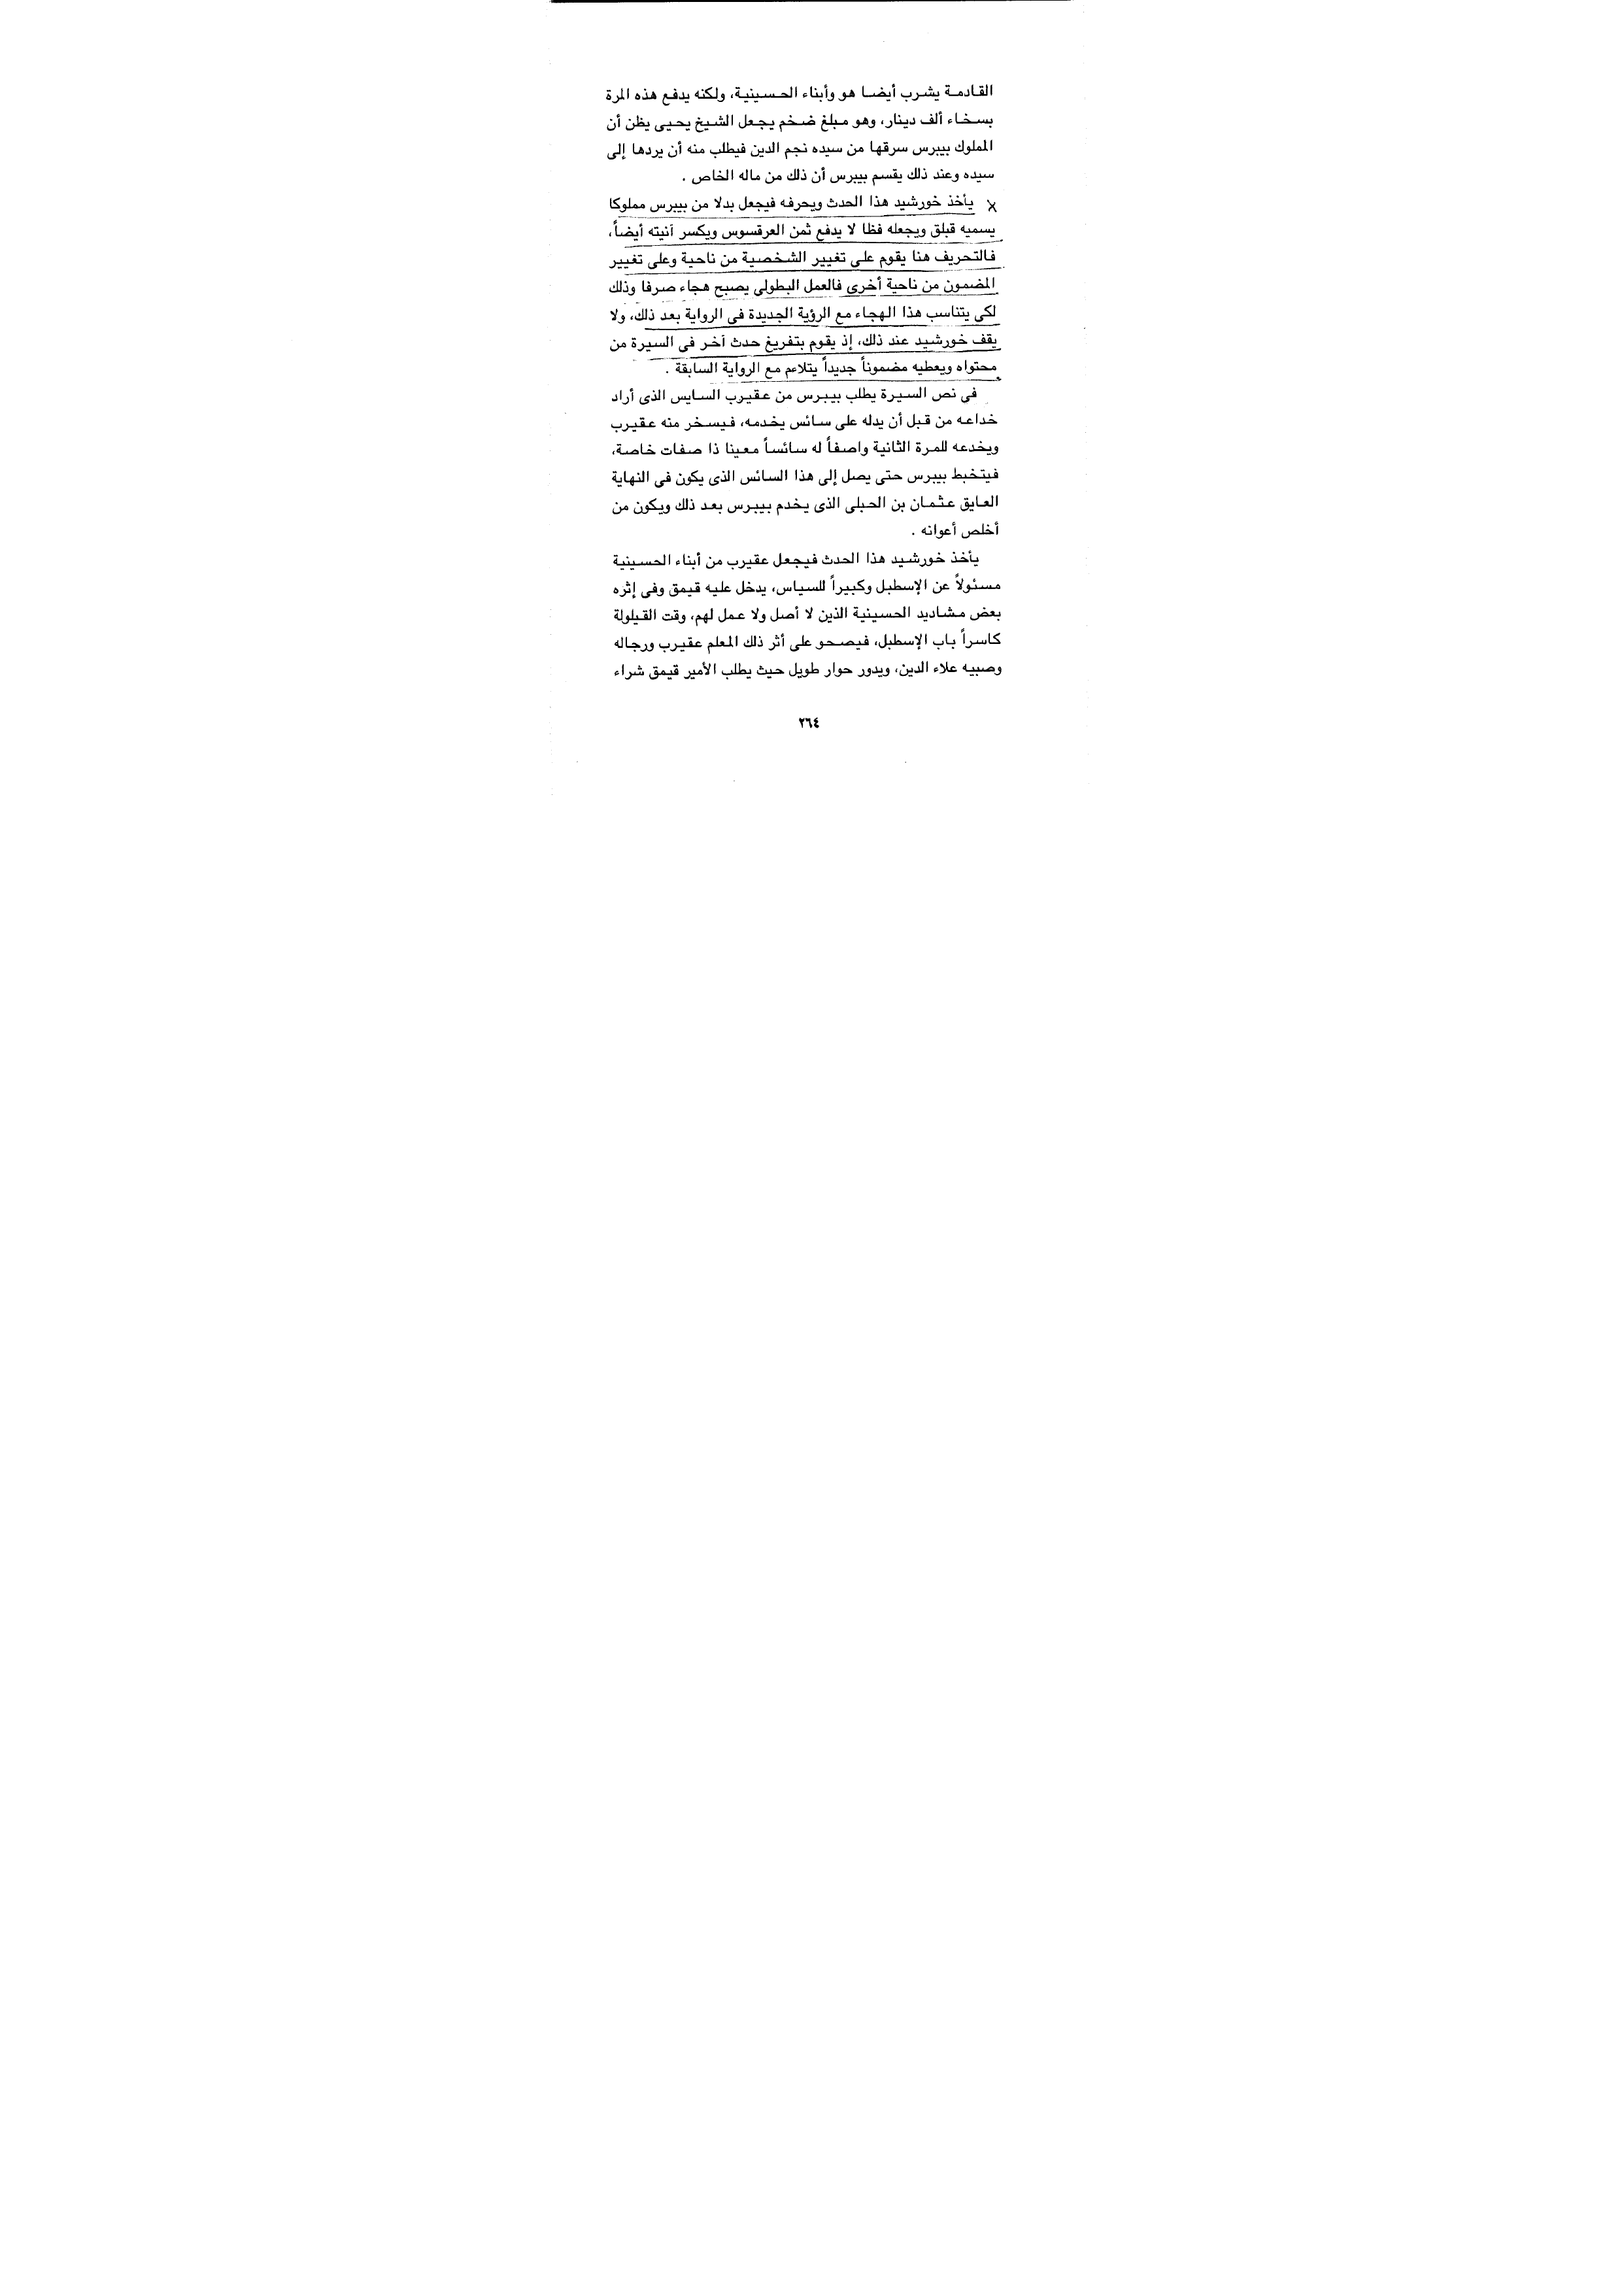 القادمة يشرب أيضا هو وأبناء الحسينية، ولكنه يدفع هذه المرة
بسخاء ألف دينار، وهو مبلغ ضخم يجعل الشيخ يحيى يظن أن
المملوك بيبرس سرقها من سيده نجم الدين فيطلب منه أن يردها إلى
سيده وعند ذلك يقسم بيبرس أن ذلك من ماله الخاص .
يأخذ خورشيد هذا الحدث ويحرفه فيجعل بدلا من بيبرس مملوكا
يسميه قبلق ويجعله فظا لا يدفع ثمن العرقسوس ويكسر آنيته أيضاً،
فالتحريف هنا يقوم على تغيير الشخصية من ناحية وعلى تغيير
المضمون من ناحية أخرى فالعمل البطولى يصبح هجاء صرفا وذلك
لكى يتناسب هذا الهجاء مع الرؤية الجديدة فى الرواية بعد ذلك، ولا
يقف خورشيد عند ذلك، إذ يقوم بتفريغ حدث آخر فى السيرة من
محتواه ويعطيه مضموناً جديداً يتلاءم مع الرواية السابقة .
فى نص السيرة يطلب بيبرس من عقيرب السايس الذى أراد
خداعه من قبل أن يدله على سائس يخدمه، فيسخر منه عقيرب
ويخدعه للمرة الثانية واصفاً له سائساً معينا ذا صفات خاصة،
فيتخبط بيبرس حتى يصل إلى هذا السائس الذى يكون فى النهاية
العايق عثمان بن الحبلى الذى يخدم بيبرس بعد ذلك ويكون من
أخلص أعوانه .
يأخذ خورشيد هذا الحدث فيجعل عقيرب من أبناء الحسينية
مسئولاً عن الإسطبل وكبيراً للسياس، يدخل عليه قيمق وفى إثره
بعض مشاديد الحسينية الذين لا أصل ولا عمل لهم، وقت القيلولة
كاسراً باب الإسطبل، فيصحو على أثر ذلك المعلم عقيرب ورجاله
وصبيه علاء الدين، ويدور حوار طويل حيث يطلب الأمير قيمق شراء
٢٦٤